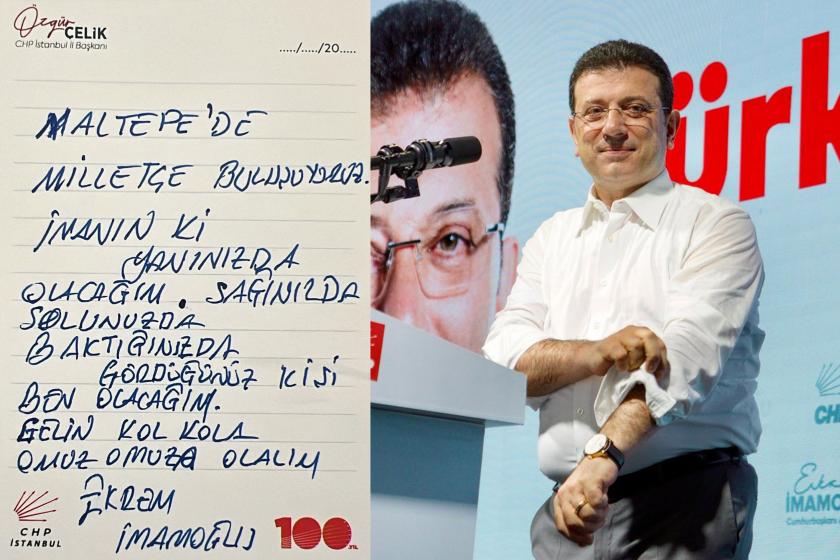 Özgür
ÇELİK
CHP İstanbul İl Başkanı
...../...../20.....
MALTEPE'DE
MİLLETÇE BULUŞUYORUZ.
İNANIN Kİ
YANINIZDA
OLACAĞIM. SAĞINIZDA
SOLUNUZDA
BAKTIĞINIZDA
GÖRDÜĞÜNÜZ KİŞİ
BEN OLACAĞIM.
GELİN KOL KOLA
OMUZ OMUZA OLALIM
EKREM
İMAMOĞLU
CHP
İSTANBUL
100.YIL
ürk
CH
İMAMO
Cumhurbaşkanı